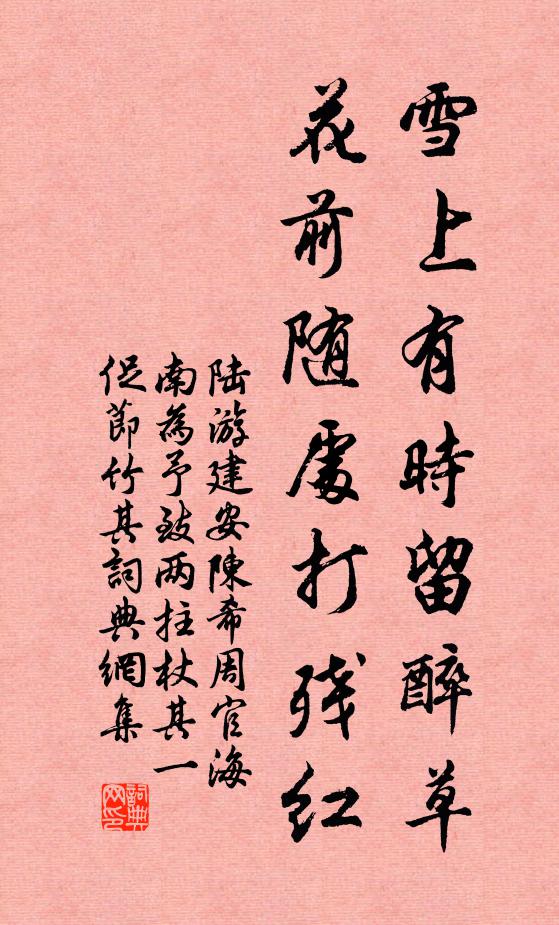 雪上有時留醉草
花前随處打残紅
陆游建安陳希周官海
南為予致两拄杖其一
促節竹其詞典網集
詞典
网印